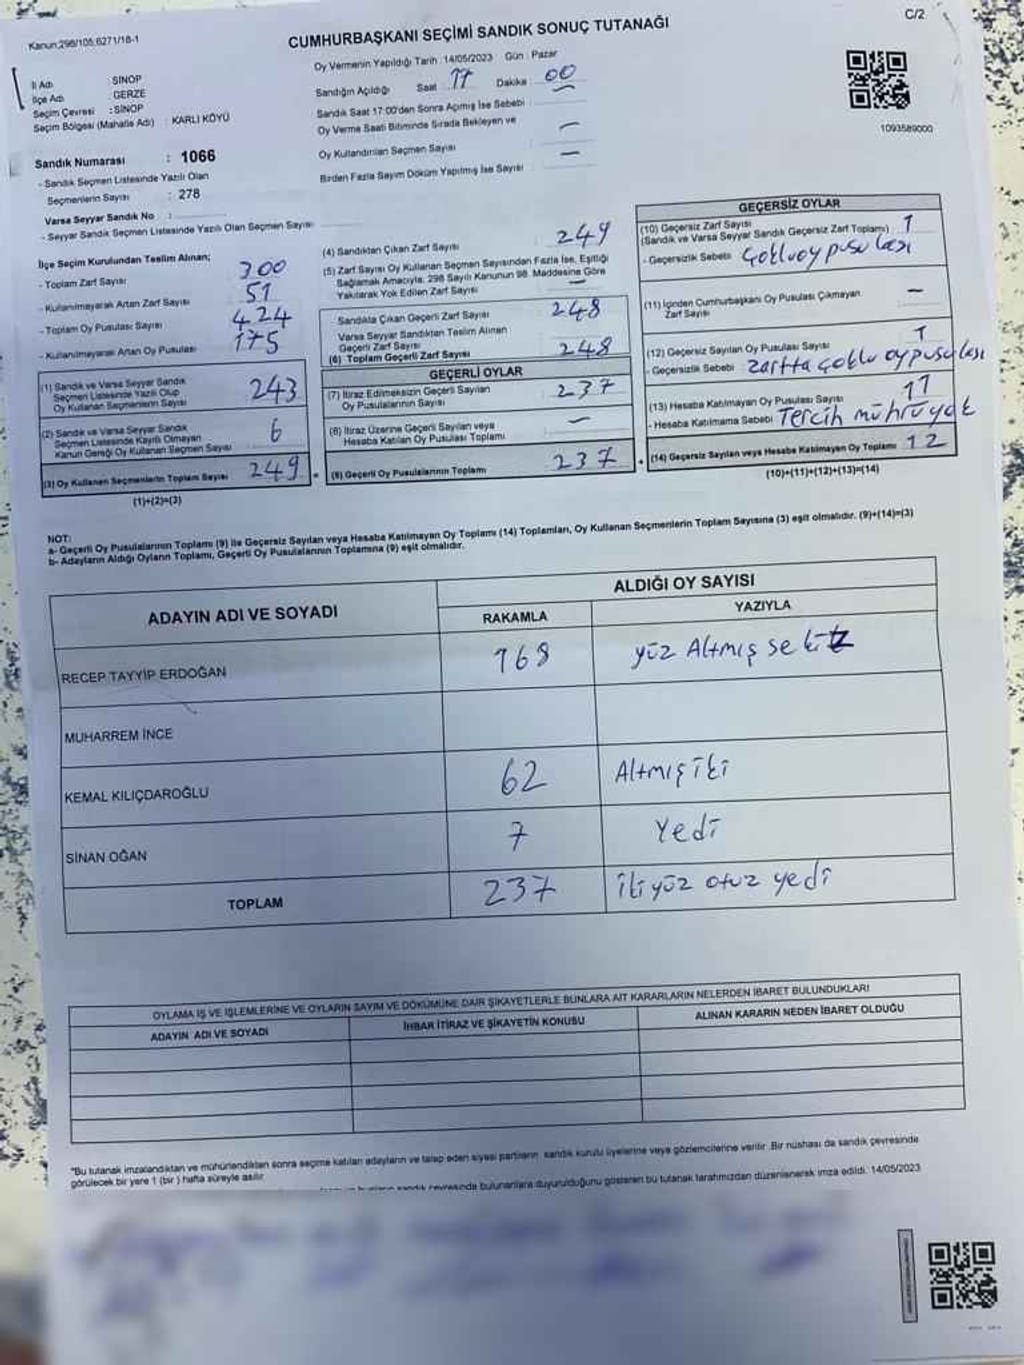 Kanun;298/105;6271/18-1
C/2
CUMHURBAŞKANI SEÇİMİ SANDIK SONUÇ TUTANAĞI
İl Adı : SİNOP
İlçe Adı : GERZE
Seçim Çevresi : SİNOP
Seçim Bölgesi (Mahalle Adı) : KARLI KÖYÜ
Sandık Numarası : 1066
- Sandık Seçmen Listesinde Yazılı Olan
Seçmenlerin Sayısı : 278
Varsa Seyyar Sandık No :
- Seyyar Sandık Seçmen Listesinde Yazılı Olan Seçmen Sayısı
Oy Vermenin Yapıldığı Tarih : 14/05/2023 Gün : Pazar
Sandığın Açıldığı Saat 17 Dakika 00
Sandık Saat 17:00'den Sonra Açmış İse Sebebi
Oy Verme Saati Bitiminde Sırada Bekleyen ve
Oy Kullandırılan Seçmen Sayısı —
Birden Fazla Sayım Döküm Yapılmış İse Sayısı —
1093589000
İlçe Seçim Kurulundan Teslim Alınan;
- Toplam Zarf Sayısı 300
- Kullanılmayarak Artan Zarf Sayısı 51
- Toplam Oy Pusulası Sayısı 424
- Kullanılmayarak Artan Oy Pusulası 175
(1) Sandık ve Varsa Seyyar Sandık
Seçmen Listesinde Yazılı Olup
Oy Kullanan Seçmenlerin Sayısı 243
(2) Sandık ve Varsa Seyyar Sandık
Seçmen Listesinde Kayıtlı Olmayan
Kanun Gereği Oy Kullanan Seçmen Sayısı 6
(3) Oy Kullanan Seçmenlerin Toplam Sayısı 249
(1)+(2)=(3)
(4) Sandıktan Çıkan Zarf Sayısı 249
(5) Zarf Sayısı Oy Kullanan Seçmen Sayısından Fazla İse, Eşitliği
Sağlamak Amacıyla; 298 Sayılı Kanunun 98. Maddesine Göre
Yakılarak Yok Edilen Zarf Sayısı —
Sandıkta Çıkan Geçerli Zarf Sayısı 248
Varsa Seyyar Sandıktan Teslim Alınan
Geçerli Zarf Sayısı
(6) Toplam Geçerli Zarf Sayısı 248
GEÇERLİ OYLAR
(7) İtiraz Edilmeksizin Geçerli Sayılan
Oy Pusulalarının Sayısı 237
(8) İtiraz Üzerine Geçerli Sayılan veya
Hesaba Katılan Oy Pusulası Toplamı —
(9) Geçerli Oy Pusulalarının Toplamı 237
GEÇERSİZ OYLAR
(10) Geçersiz Zarf Sayısı
(Sandık ve Varsa Seyyar Sandık Geçersiz Zarf Toplamı) : 1
- Geçersizlik Sebebi Çoklu oy pusulası
(11) İçinden Cumhurbaşkanı Oy Pusulası Çıkmayan
Zarf Sayısı —
(12) Geçersiz Sayılan Oy Pusulası Sayısı 1
- Geçersizlik Sebebi zarfta çoklu oy pusulası
(13) Hesaba Katılmayan Oy Pusulası Sayısı 11
- Hesaba Katılmama Sebebi Tercih mührü yok
(14) Geçersiz Sayılan veya Hesaba Katılmayan Oy Toplamı 12
(10)+(11)+(12)+(13)=(14)
NOT:
a- Geçerli Oy Pusulalarının Toplamı (9) ile Geçersiz Sayılan veya Hesaba Katılmayan Oy Toplamı (14) Toplamları, Oy Kullanan Seçmenlerin Toplam Sayısına (3) eşit olmalıdır. (9)+(14)=(3)
b- Adayların Aldığı Oyların Toplamı, Geçerli Oy Pusulalarının Toplamına (9) eşit olmalıdır.
ADAYIN ADI VE SOYADI
ALDIĞI OY SAYISI
RAKAMLA YAZIYLA
RECEP TAYYİP ERDOĞAN 168 yüz Altmış sekiz
MUHARREM İNCE
KEMAL KILIÇDAROĞLU 62 Altmış iki
SİNAN OĞAN 7 Yedi
TOPLAM 237 iki yüz otuz yedi
OYLAMA İŞ VE İŞLEMLERİNE VE OYLARIN SAYIM VE DÖKÜMÜNE DAİR ŞİKAYETLERLE BUNLARA AİT KARARLARIN NELERDEN İBARET BULUNDUKLARI
ADAYIN ADI VE SOYADI İHBAR İTİRAZ VE ŞİKAYETİN KONUSU ALINAN KARARIN NEDEN İBARET OLDUĞU
*Bu tutanak imzalandıktan ve mühürlendikten sonra seçime katılan adayların ve talep eden siyasi partilerin sandık kurulu üyelerine veya gözlemcilerine verilir. Bir nüshası da sandık çevresinde
görülecek bir yere 1 (bir) hafta süreyle asılır.
sandık çevresinde bulunanlara duyurulduğunu gösteren bu tutanak tarafımızdan düzenlenerek imza edildi. 14/05/2023